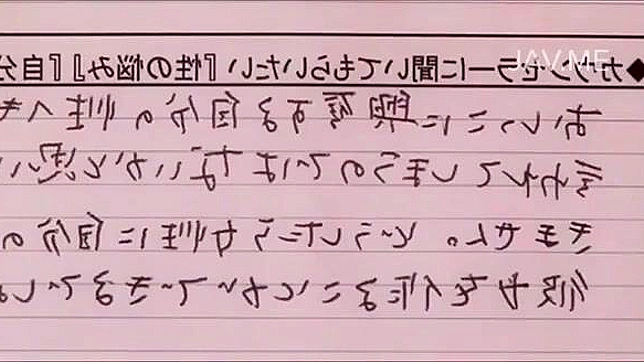 ◆カウンセラーに聞いてもらいたい『性の悩み』『自分
JAV.ME
おいっこに興奮する自分の性へき
言われてしまうのではないかと思い
きません。どうしたら女性に自分の
彼女を作ることができるでしょ